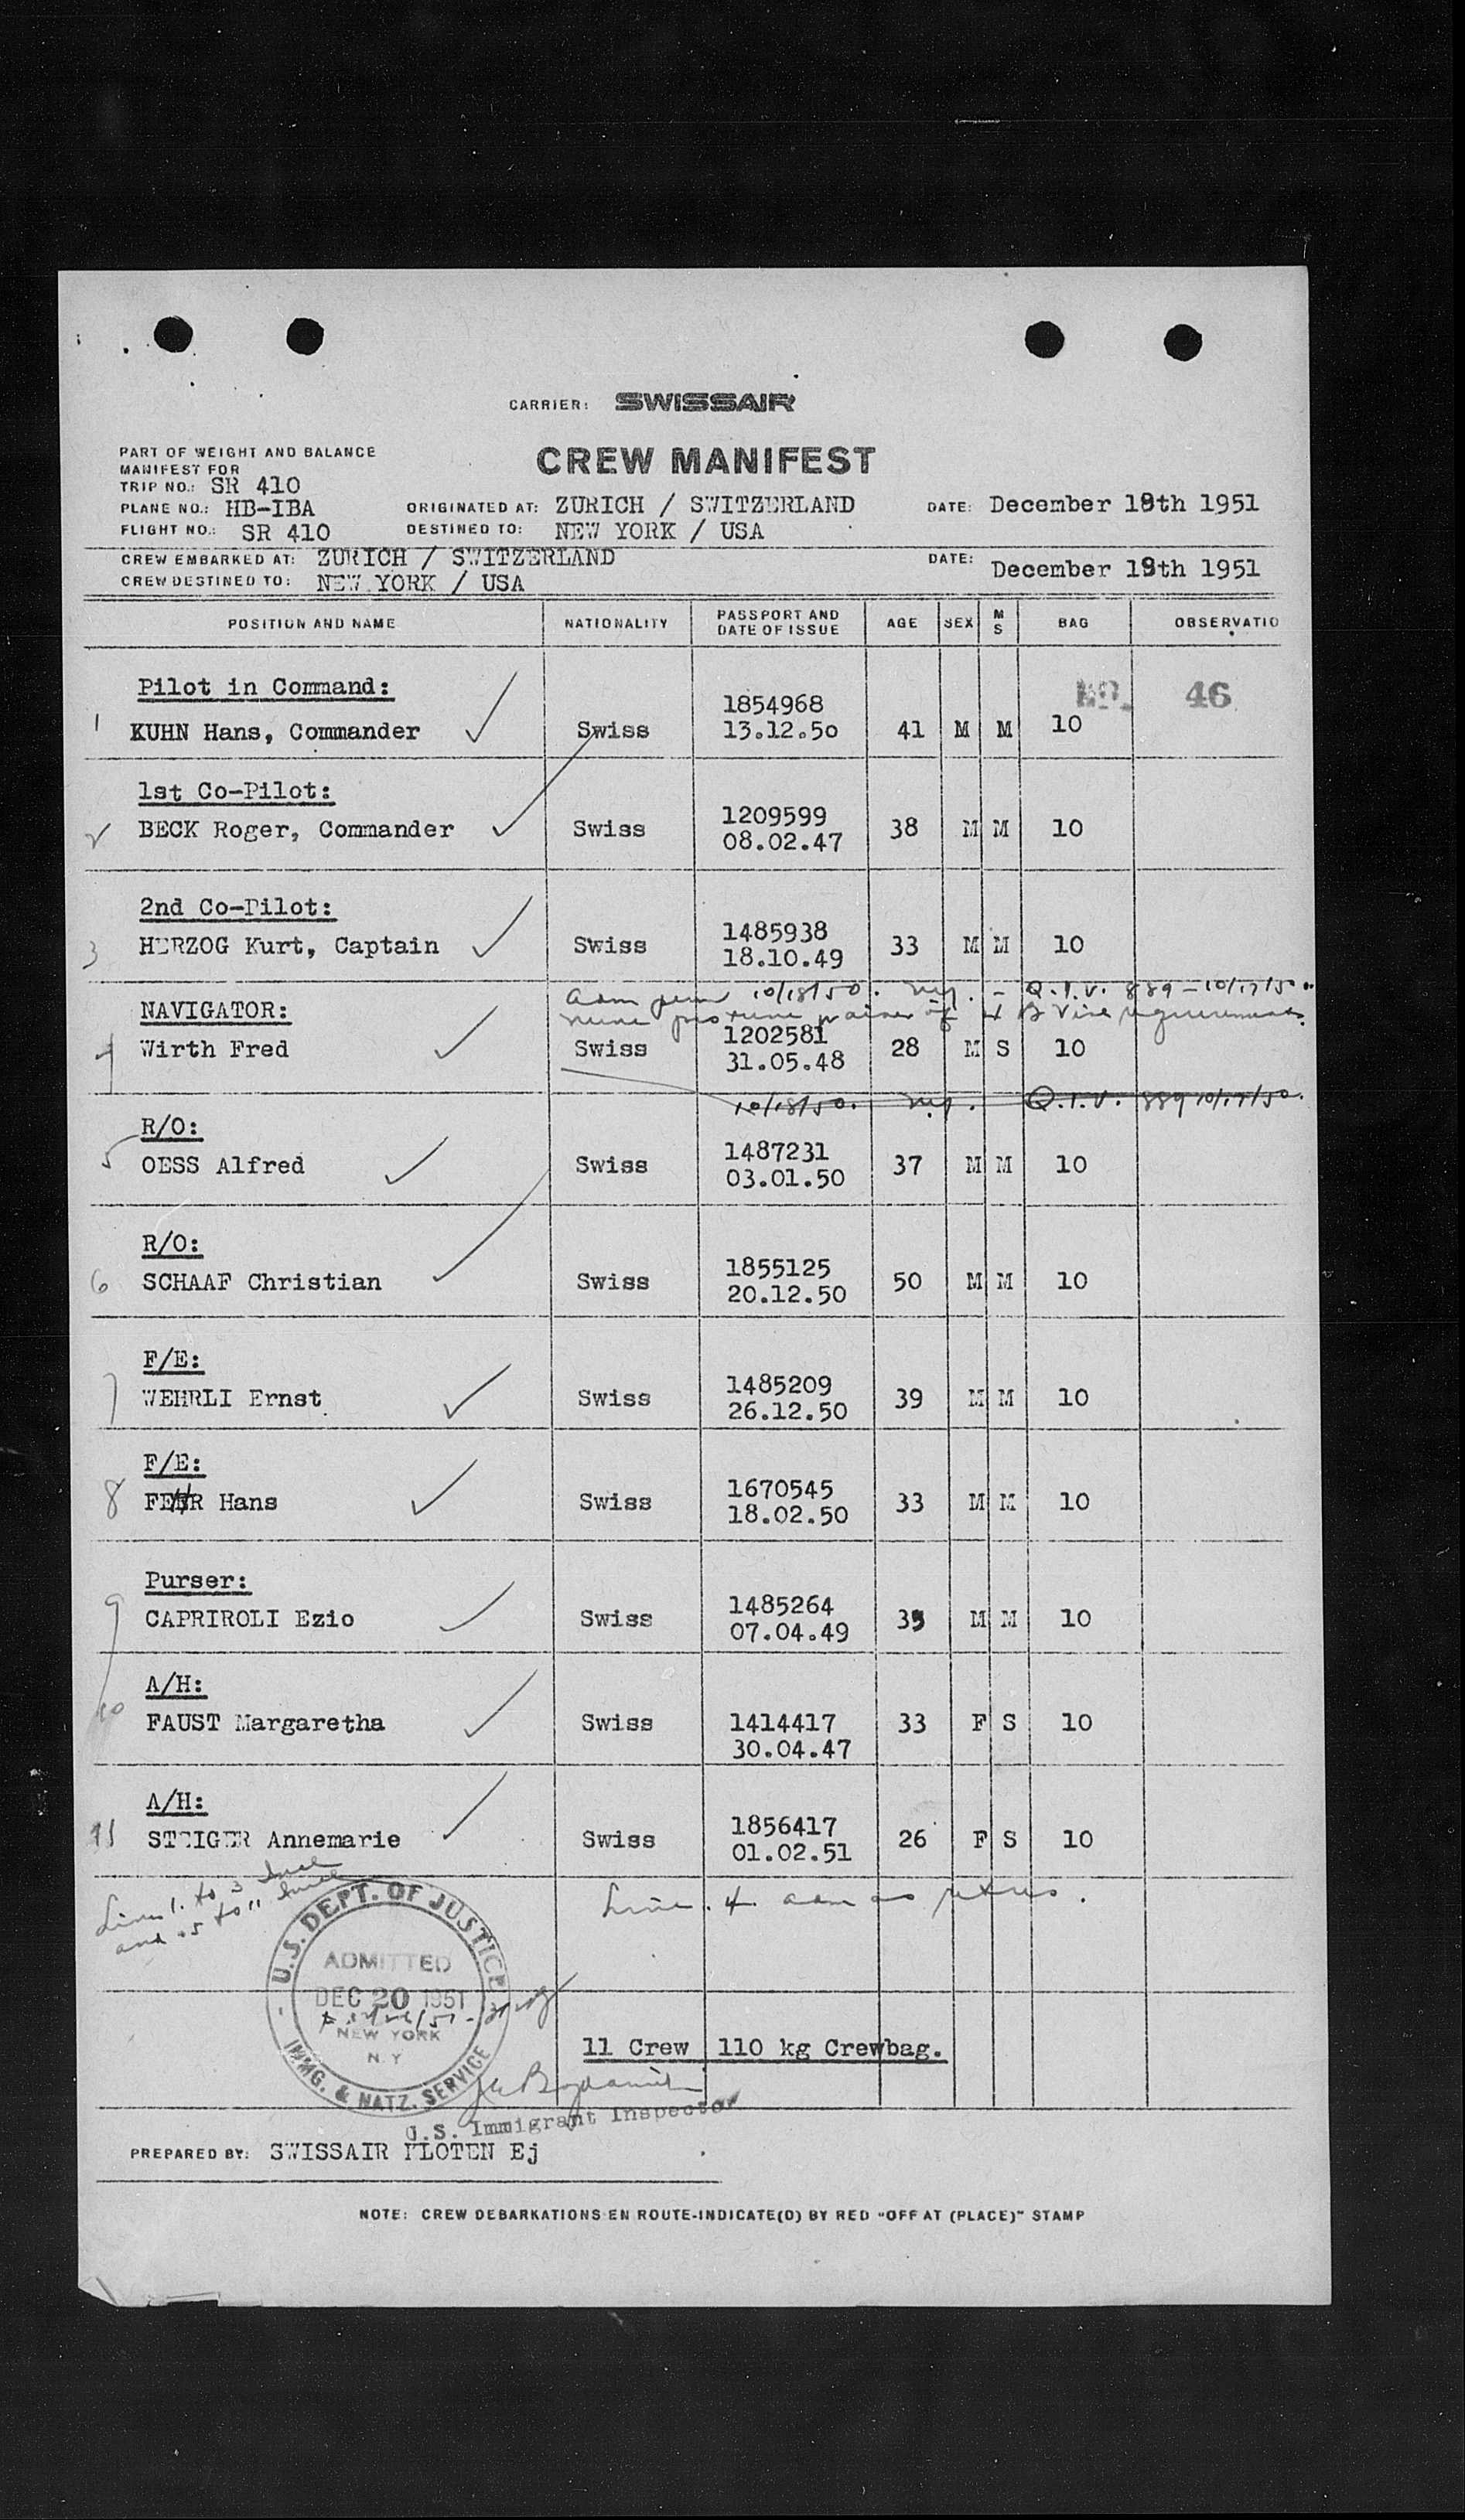 CARRIER: SWISSAIR
CREW MANIFEST
PART OF WEIGHT AND BALANCE
MANIFEST FOR
TRIP NO.: SR 410
PLANE NO.: HB-IBA ORIGINATED AT: ZURICH / SWITZERLAND DATE: December 19th 1951
FLIGHT NO.: SR 410 DESTINED TO: NEW YORK / USA
CREW EMBARKED AT: ZURICH / SWITZERLAND DATE: December 19th 1951
CREW DESTINED TO: NEW YORK / USA
POSITION AND NAME NATIONALITY PASSPORT AND DATE OF ISSUE AGE SEX M S BAG OBSERVATIO
Pilot in Command: 46
1 KUHN Hans, Commander Swiss 1854968 13.12.50 41 M M 10
1st Co-Pilot:
2 BECK Roger, Commander Swiss 1209599 08.02.47 38 M M 10
2nd Co-Pilot:
3 HERZOG Kurt, Captain Swiss 1485938 18.10.49 33 M M 10
10/18/50. - Q.I.V. 889 - 10/17/50
NAVIGATOR:
4 Wirth Fred Swiss 1202581 31.05.48 28 M S 10
10/18/50. Q.I.V. 889 10/17/50.
R/O:
5 OESS Alfred Swiss 1487231 03.01.50 37 M M 10
R/O:
6 SCHAAF Christian Swiss 1855125 20.12.50 50 M M 10
F/E:
7 WEHRLI Ernst Swiss 1485209 26.12.50 39 M M 10
F/E:
8 FEHR Hans Swiss 1670545 18.02.50 33 M M 10
Purser:
9 CAPRIROLI Ezio Swiss 1485264 07.04.49 35 M M 10
A/H:
10 FAUST Margaretha Swiss 1414417 30.04.47 33 F S 10
A/H:
11 STEIGER Annemarie Swiss 1856417 01.02.51 26 F S 10
Lines 1. to 3 Incl
and 5 to 11 Incl
Line. 4 adm as
U.S. DEPT. OF JUSTICE
ADMITTED
DEC 20 1951
NEW YORK
N.Y
IMMG. & NATZ. SERVICE
11 Crew 110 kg Crewbag.
U.S. Immigrant Inspector
PREPARED BY: SWISSAIR KLOTEN Ej
NOTE: CREW DEBARKATIONS EN ROUTE-INDICATE(D) BY RED "OFF AT (PLACE)" STAMP